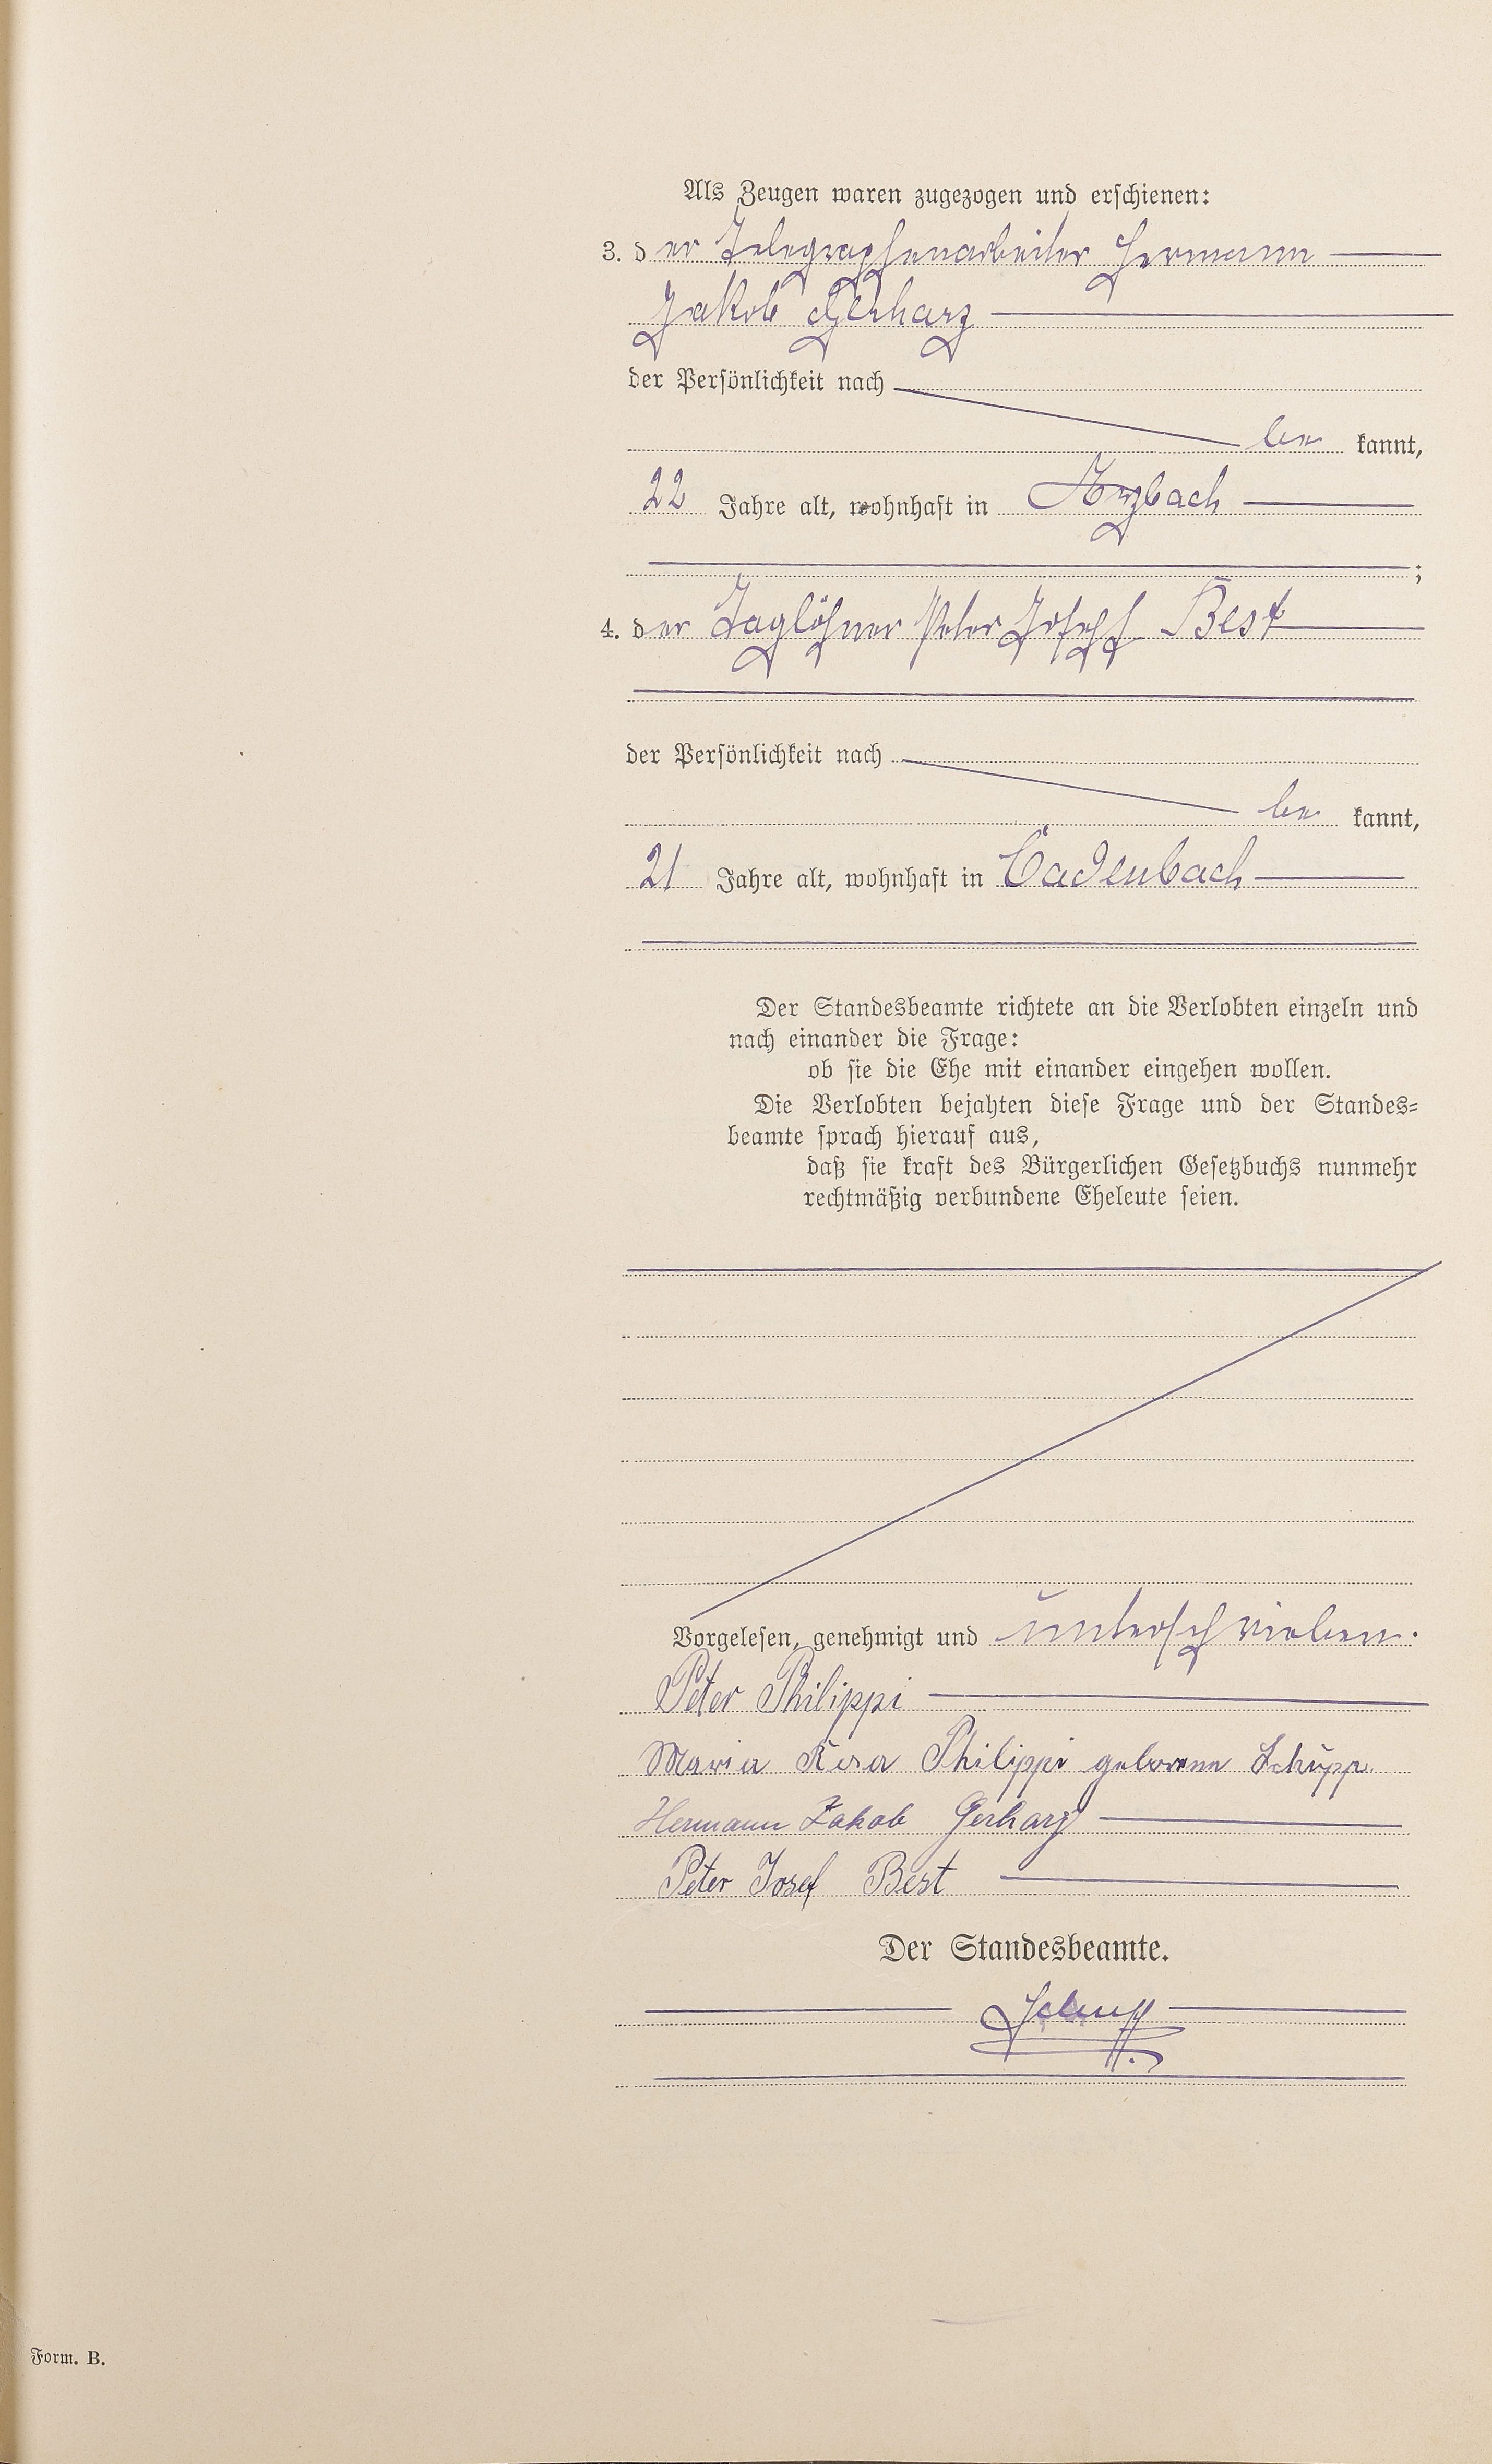 Als Zeugen waren zugezogen und erschienen:
3. der Telegraphenarbeiter Hermann
Jakob Gerharz
der Persönlichkeit nach
be kannt,
22 Jahre alt, wohnhaft in Arzbach
;
4. der Taglöhner Peter Joseph Best
der Persönlichkeit nach
be kannt,
21 Jahre alt, wohnhaft in Cadenbach
Der Standesbeamte richtete an die Verlobten einzeln und
nach einander die Frage:
ob sie die Ehe mit einander eingehen wollen.
Die Verlobten bejahten diese Frage und der Standes=
beamte sprach hierauf aus,
daß sie kraft des Bürgerlichen Gesetzbuchs nunmehr
rechtmäßig verbundene Eheleute seien.
Vorgelesen, genehmigt und unterschrieben.
Peter Philippi
Maria Rosa Philippi geborene Schupp.
Hermann Jakob Gerharz
Peter Josef Best
Der Standesbeamte.
Schupp
Form. B.